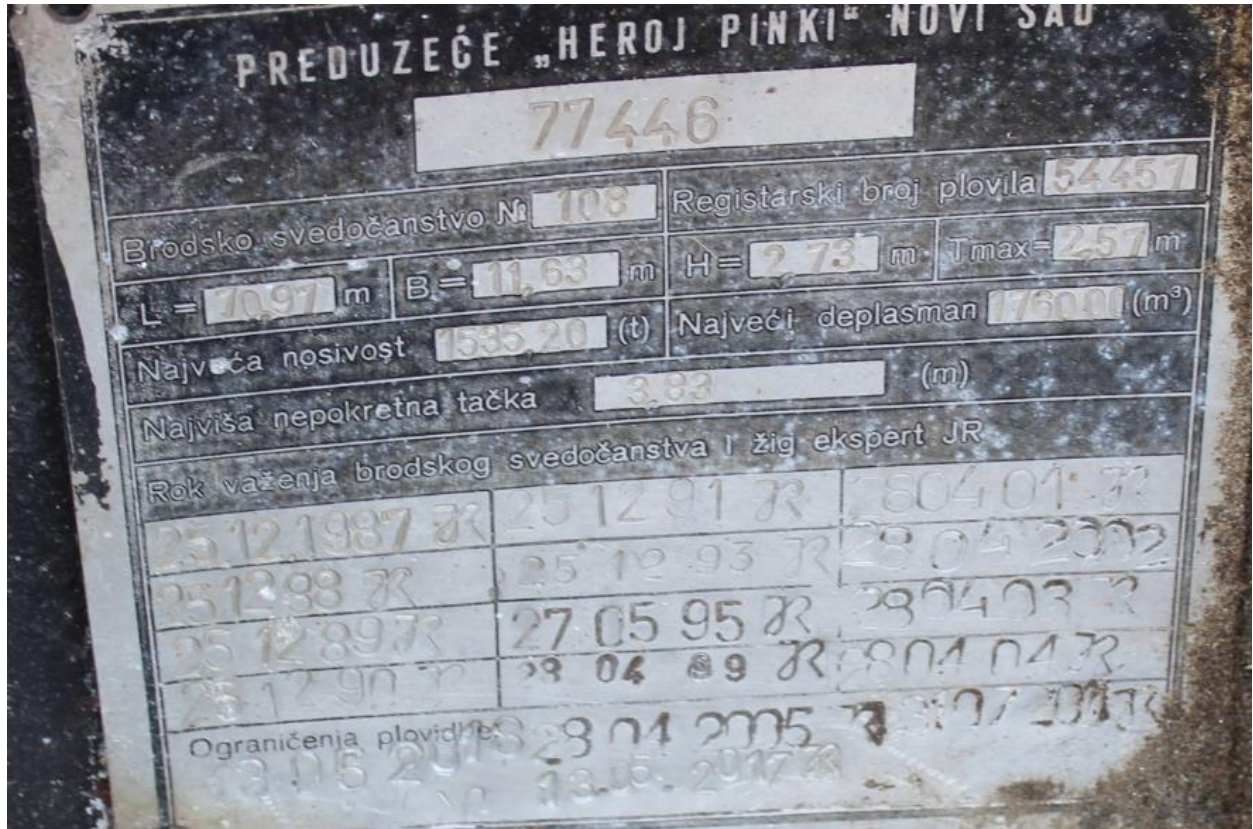 PREDUZEĆE „HEROJ PINKI“ NOVI SAD
77446
Brodsko svedočanstvo № 108 Registarski broj plovila 54457
L = 70,97 m B = 11,63 m H = 2,73 m Tmax = 2,57 m
Najveća nosivost 1535,20 (t) Najveći deplasman 1760.00 (m³)
Najviša nepokretna tačka 3,83 (m)
Rok važenja brodskog svedočanstva I žig ekspert JR
25 12.1987 JR 25 12 91 JR 280401 JR
25 12 88 JR 25 12 93 JR 28 04 2002
25 12 89 JR 27 05 95 JR 280403 JR
25 12 90 JR 04 JR 280404 JR
Ograničenja plovidbe 28 04 2005 JR
13.05. 2017 JR